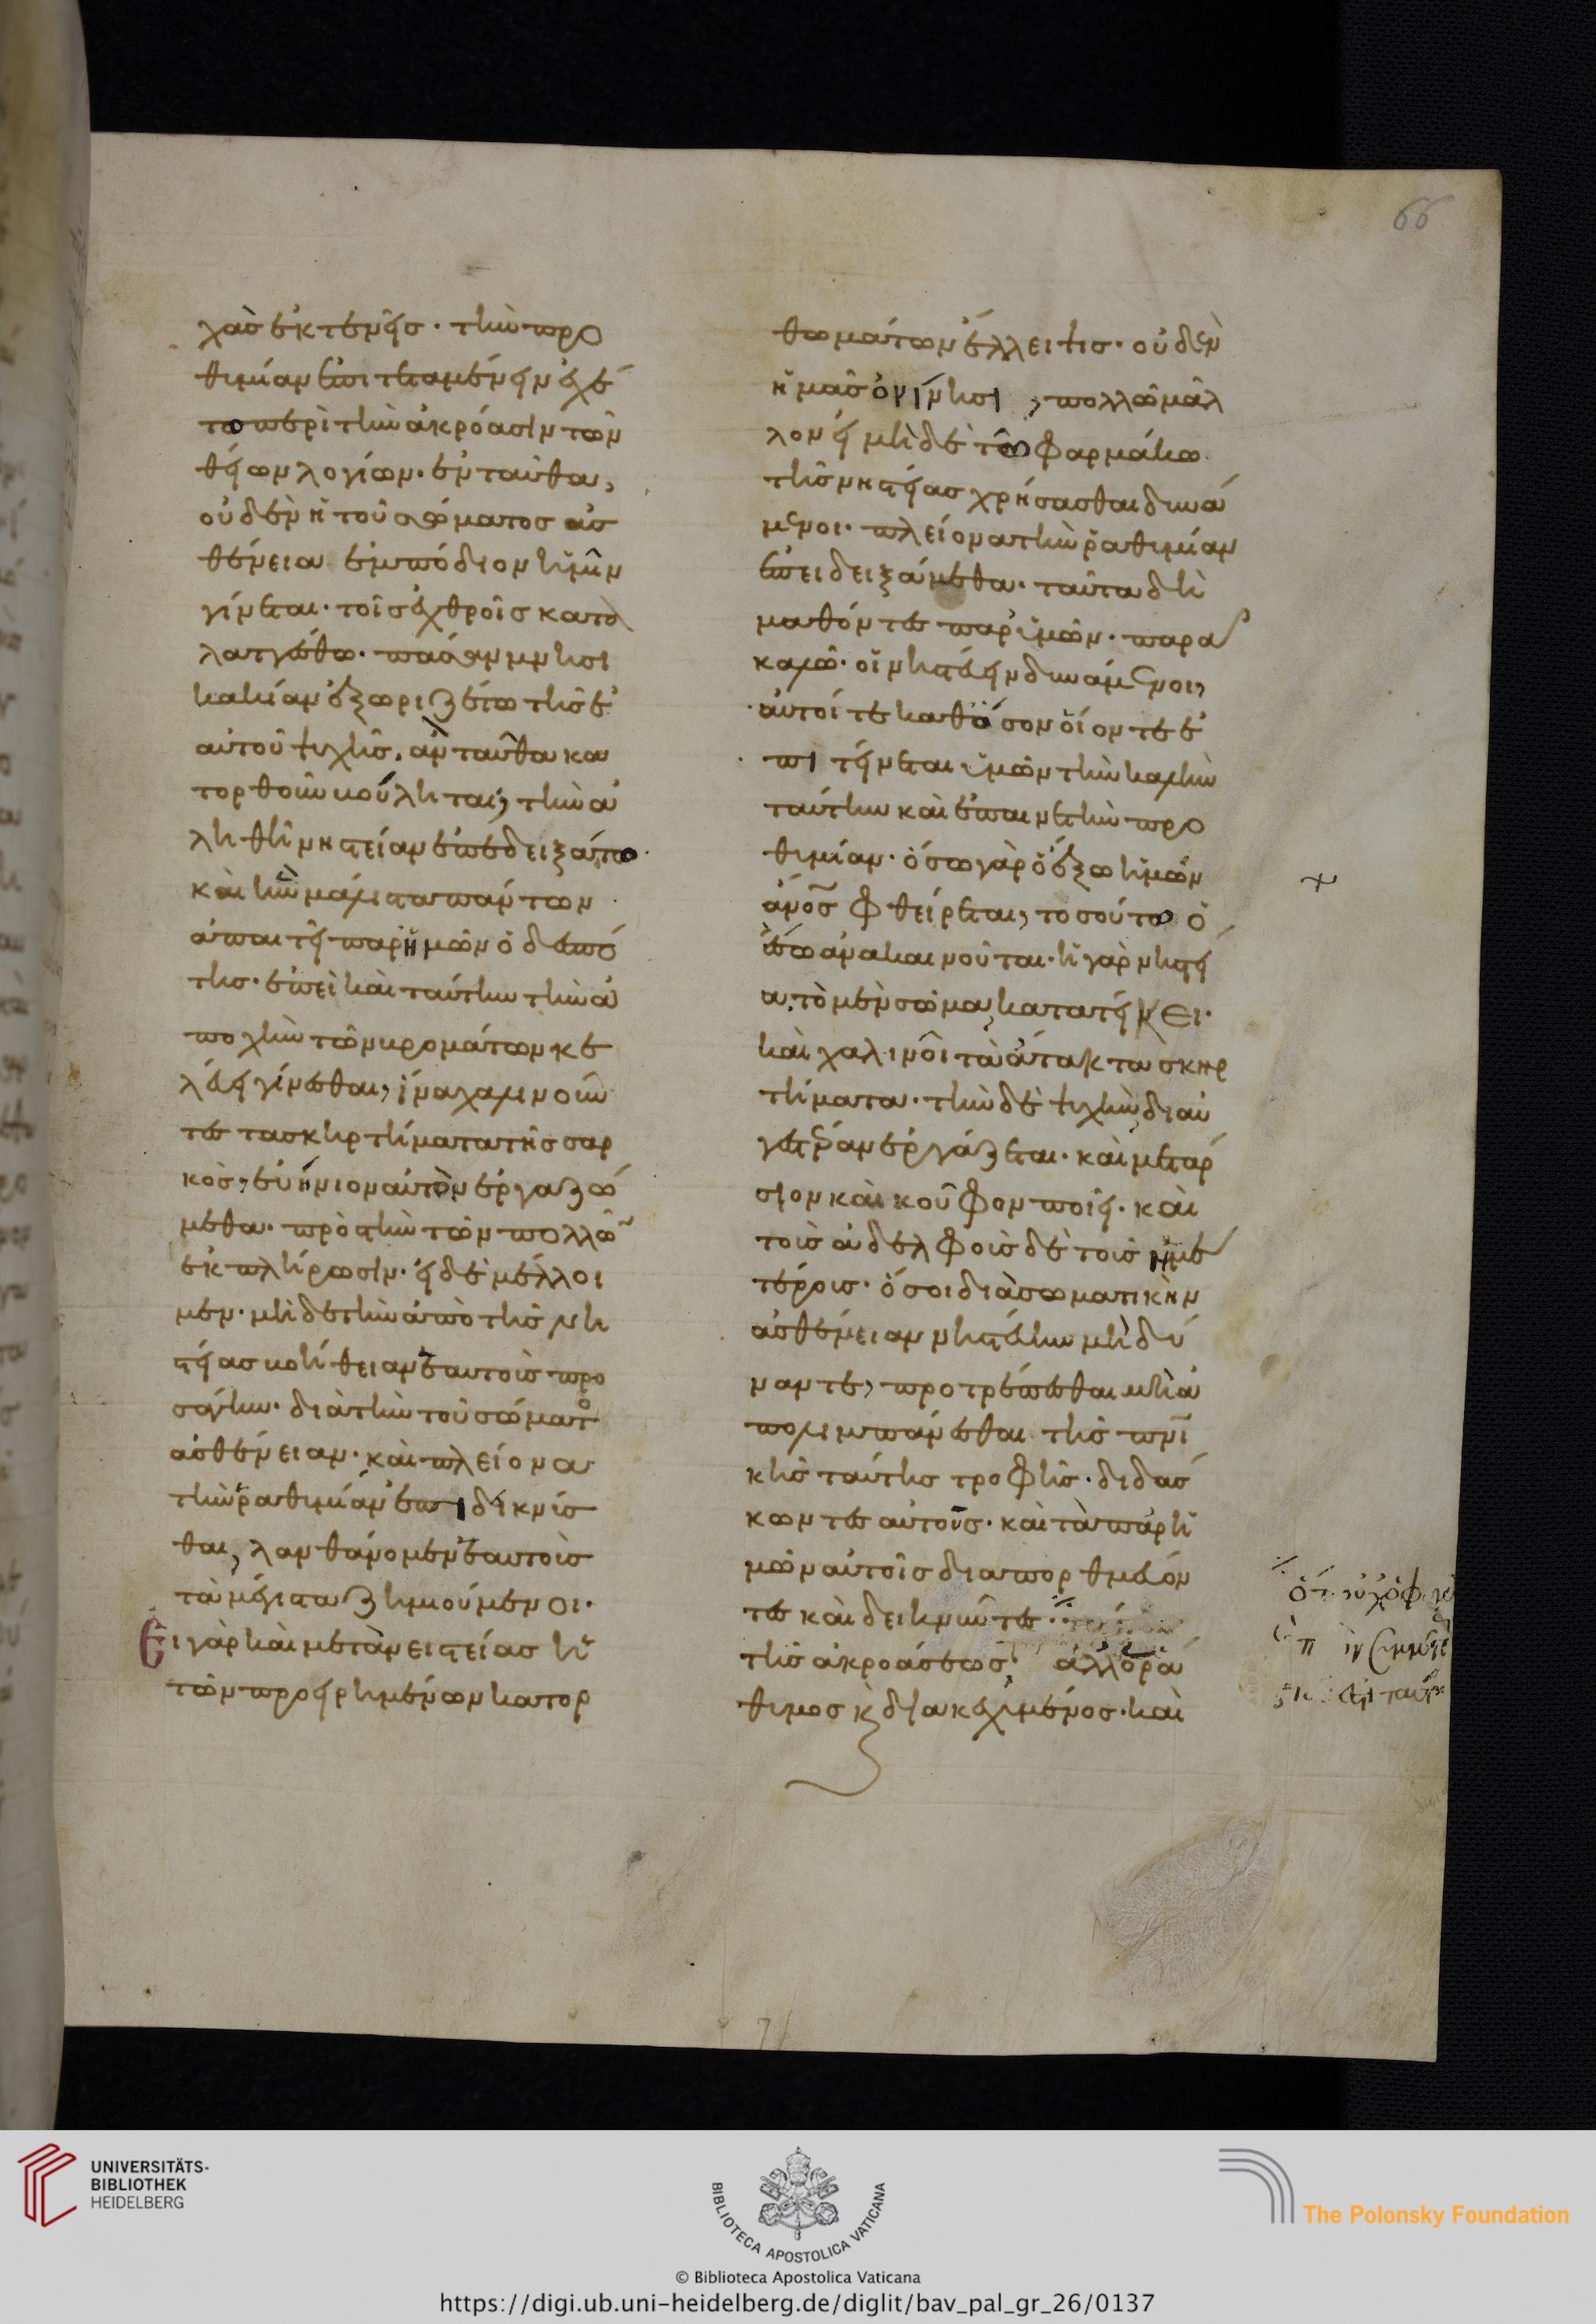 66
χὰσ ἐκτενεῖσ· τὴν προ
θυμίαν ἐπιτεταμένην ἐχέ
τω περὶ τὴν ἀκρόασιν τῶν
θείων λογίων· ἐνταῦθα,
οὐδὲν ἡ τοῦ σώματοσ ἀσ
θένεια ἐμπόδιον ἡμῖν
γίνεται· τοῖσ ἐχθροῖσ καταλ
λατέσθω· πᾶσαν μνησι
κακίαν ἐξωριζέτω τῆσ ἑ
αυτοῦ ψυχῆσ. ἂν ταῦτα κα
τορθοῦν βούληται, τὴν ἀ
ληθῆ νηστείαν ἐπεδείξατο
καὶ ἣν μάλιστα πάντων
ἀπαιτεῖ παρ' ἡμῶν ὁ δεσπό
τησ· ἐπεὶ καὶ ταύτην τὴν ἀ
ποχὴν τῶν βρωμάτων κε
λεύει γίνεσθαι, ἵνα χαλινοῦν
τεσ τα σκιρτήματα τῆσ σαρ
κὸσ, εὐήνιον αὐτὸν ἐργαζώ
μεθα· πρὸσ τὴν τῶν πολλῶν
ἐκπλήρωσιν· εἰ δὲ μέλλοι
μεν· μὴ δε τὴν ἀπὸ τῆσ νη
στείασ βοήθειαν ἑαυτοῖσ προ
σάγειν· διὰ τὴν τοῦ σώματος
ἀσθένειαν· καὶ πλείονα
τὴν ραθυμίαν ἐπιδείκνυσ
θαι, λανθάνομεν ἑαυτοὺσ
τὰ μέγιστα ζημιούμενοι·
Εἰ γὰρ καὶ μετὰ νειστείασ ἡ
τῶν προειρημένων κατορ
θωμάτων ἔλλειψισ· οὐδὲν
ἡμᾶσ ὀνίνησι, πολλῶ μᾶλ
λον εἰ μὴ δὲ τῶ φαρμάκω
τῆσ νηστείασ χρήσασθαι δυνά
μενοι· πλείονα τὴν ραθυμίαν
ἐπειδειξάμεθα· ταῦτα δὴ
μαθόντεσ παρ' ἡμῶν· παρα
καλῶ· οἱ νηστεύειν δυνάμενοι,
αὐτοί τε καθ' ὅσον οἷόν τε ἐ
πιτείνεται ὑμῶν τὴν καλὴν
ταύτην καὶ ἐπαινετὴν προ
θυμίαν· ὅσω γὰρ ὁ ἔξω ἡμῶν
ἄνος φθείρεται, τοσούτω ὁ
ἔσω ἀνακαινοῦται· ἡ γὰρ νηστεί
α, τὸ μὲν σῶμα κατατείνει·
καὶ χαλινοῖ τὰ ἄτακτα σκιρ
τήματα· τὴν δὲ ψυχὴν διαυ
γεστέραν ἐργάζεται· καὶ μετάρ
σιον καὶ κοῦφον ποιεῖ· καὶ
τοῖσ ἀδελφοῖσ δὲ τοῖσ ἡμε
τέροισ· ὅσοι διὰ σωματικὴν
ἀσθένειαν νηστεύειν μὴ δύ
νανται, προτρέπεσθαι μὴ ἀ
πολιμπάνεσθαι τῆσ πνι
κῆσ ταύτησ τροφῆσ· διδάσ
κοντεσ αὐτοὺσ· καὶ τὰ παρ' ἡ
μῶν αὐτοῖσ διαπορθμεύον
τεσ καὶ δεικνῦντεσ
τῆσ ἀκροάσεωσ, ἀλλ' ὁ ρά
θυμοσ κ διακεχυμένοσ· καὶ
UNIVERSITÄTS-
BIBLIOTHEK
HEIDELBERG
BIBLIOTECA APOSTOLICA VATICANA
The Polonsky Foundation
© Biblioteca Apostolica Vaticana
https://digi.ub.uni-heidelberg.de/diglit/bav_pal_gr_26/0137